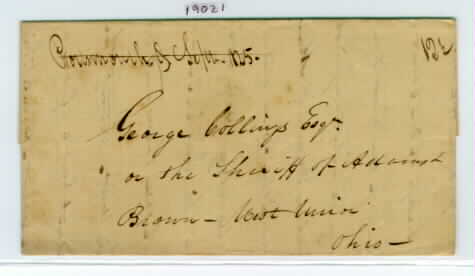 19021
Portsmouth O Sepr. 125.
12½
George Collings Esqr.
or the Sheriff of Adams &
Brown - West Union
Ohio -